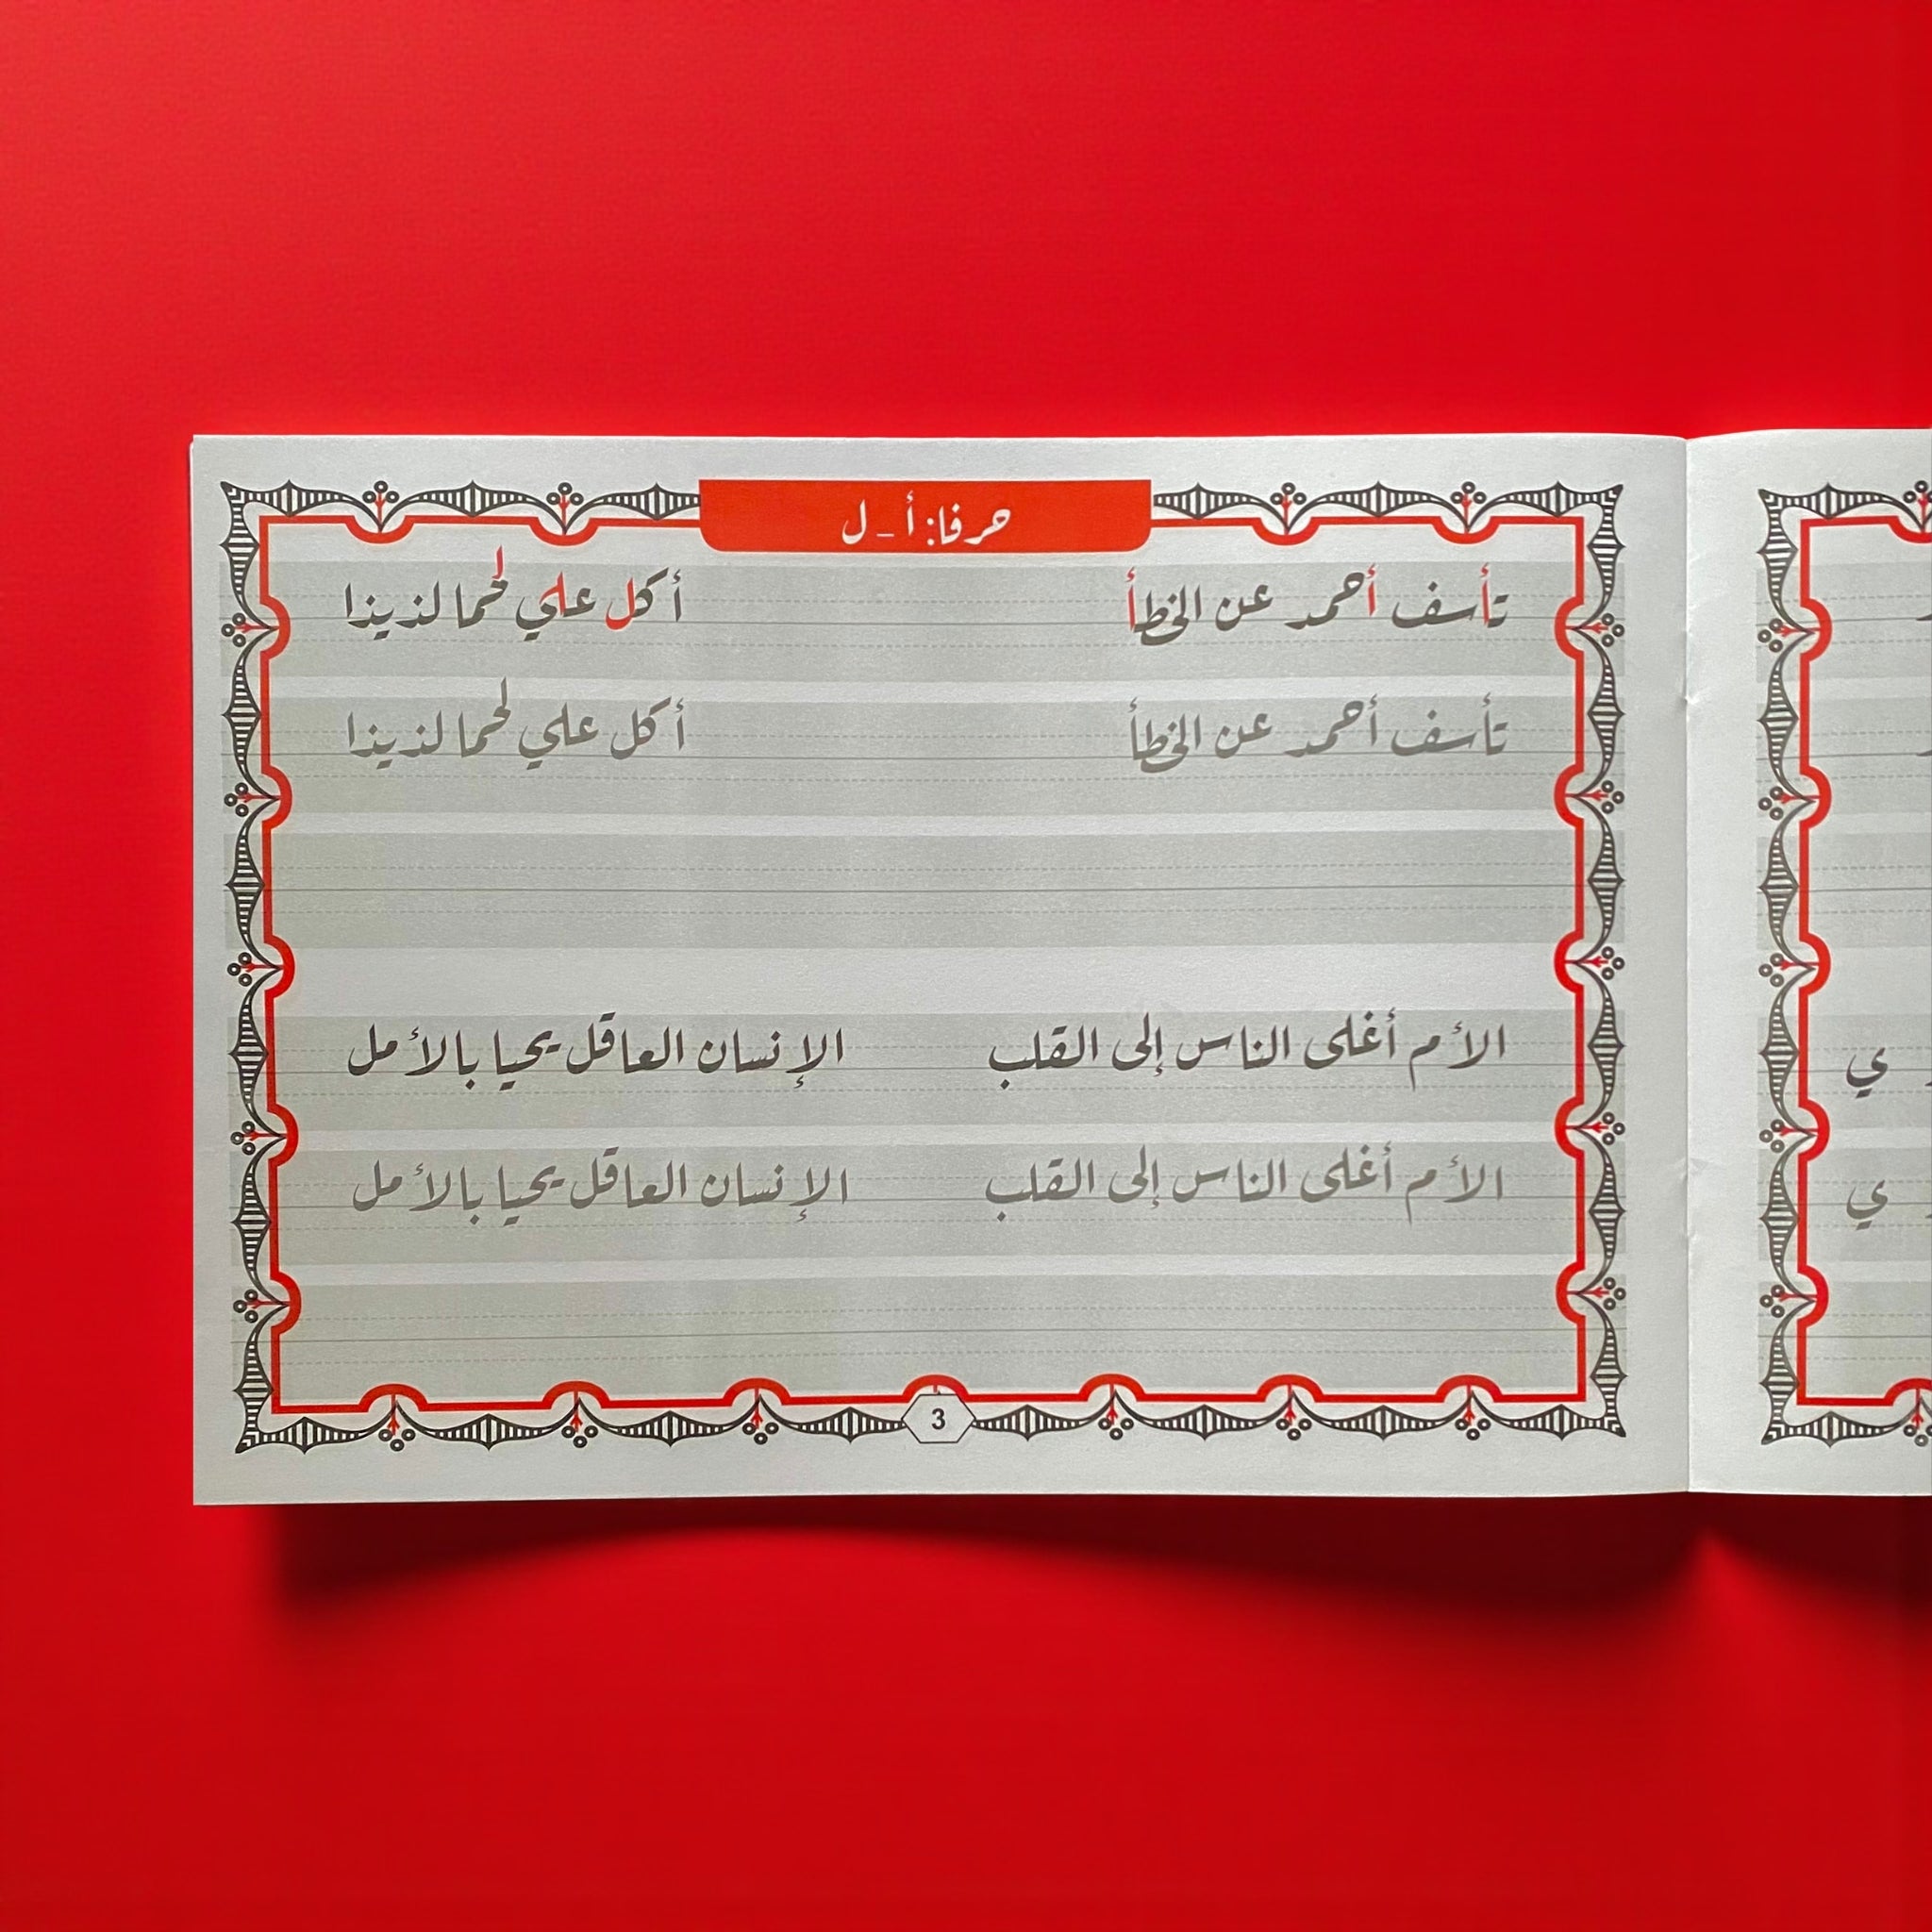 حرفا: أ - ل
تأسف أحمد عن الخطأ أكل علي لحما لذيذا
تأسف أحمد عن الخطأ أكل علي لحما لذيذا
الأم أغلى الناس إلى القلب الإنسان العاقل يحيا بالأمل
الأم أغلى الناس إلى القلب الإنسان العاقل يحيا بالأمل
3
ي
ي